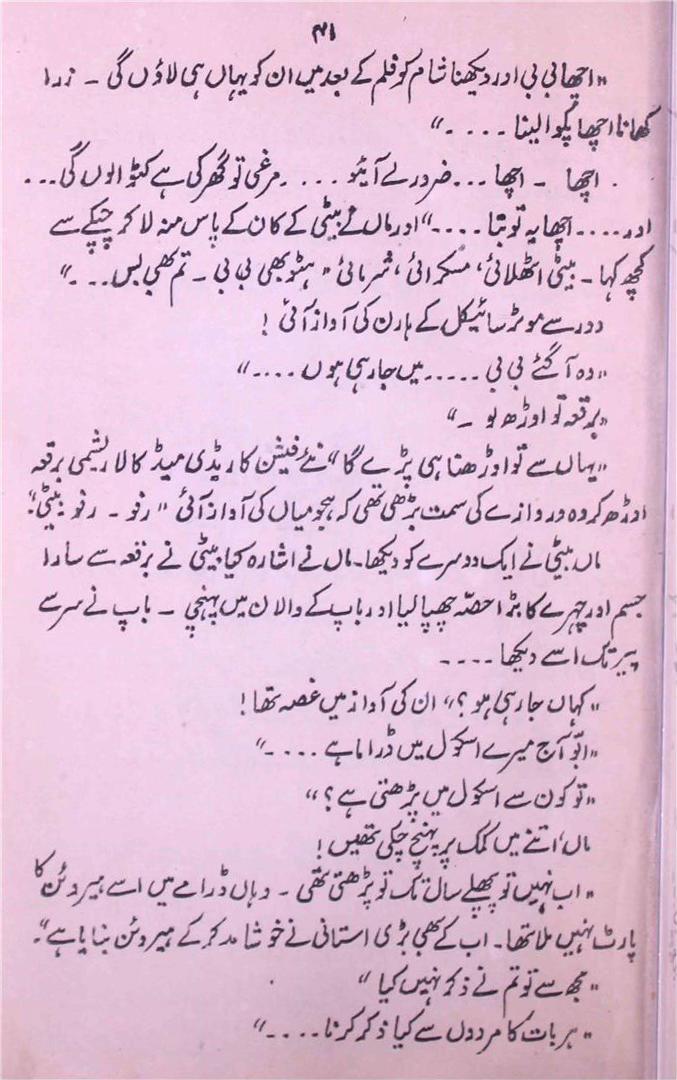 ۴۱
"اچھا بی بی اور دیکھنا شام کو فلم کے بعد میں ان کو یہاں ہی لاؤں گی ۔ زرا
کھانا اچھا پکوا لینا ۔۔۔۔"
اچھا ۔ اچھا ۔۔۔ ضرور لے آئیو ۔۔۔۔ مرغی تو گھر کی ہے کٹوا لوں گی ۔۔۔
اور ۔۔۔۔ اچھا یہ تو بتا ۔۔۔۔" اور ماں نے بیٹی کے کان کے پاس منہ لا کر چپکے سے
کچھ کہا ۔ بیٹی اٹھلائی، مسکرائی، شرمائی "ہٹو بھی بی بی ۔ تم بھی بس ۔۔۔"
دور سے موٹر سائیکل کے ہارن کی آواز آئی !
"وہ آ گئے بی بی ۔۔۔۔۔ میں جا رہی ہوں ۔۔۔۔"
"برقعہ تو اوڑھ لو ۔"
"یہاں سے تو اوڑھنا ہی پڑے گا" نئے فیشن کا ریڈی میڈ کالا ریشمی برقعہ
اوڑھ کر وہ دروازے کی سمت بڑھی تھی کہ ہجو میاں کی آواز آئی "رنو ۔ رنو بیٹی"!
ماں بیٹی نے ایک دوسرے کو دیکھا۔ ماں نے اشارہ کیا بیٹی نے برقعہ سے سارا
جسم اور چہرے کا بڑا حصّہ چھپا لیا اور باپ کے دالان میں پہنچی ۔ باپ نے سر سے
پیر تک اسے دیکھا ۔۔۔۔
"کہاں جا رہی ہو ؟" ان کی آواز میں غصہ تھا !
"ابّو آج میرے اسکول میں ڈراما ہے ۔۔۔۔"
"تو کون سے اسکول میں پڑھتی ہے ؟"
ماں اتنے میں کمک پر پہنچ چکی تھیں !
"اب نہیں تو پچھلے سال تک تو پڑھتی تھی ۔ وہاں ڈرامے میں اسے ہیروئن کا
پارٹ نہیں ملا تھا۔ اب کے بھی بڑی استانی نے خوشامد کر کے ہیروئن بنایا ہے"۔
"مجھ سے تو تم نے ذکر نہیں کیا"
"ہر بات کا مردوں سے کیا ذکر کرنا ۔۔۔۔"